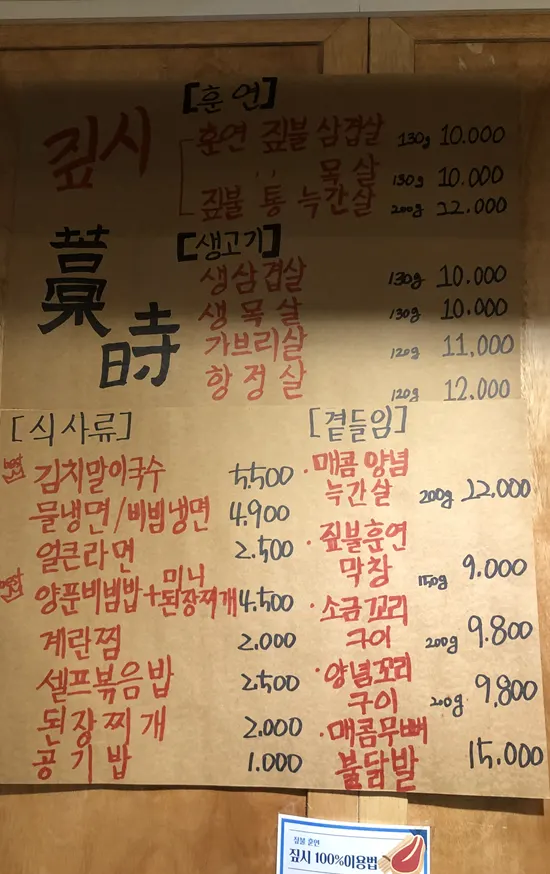 짚시
藁
時
[훈연]
훈연 짚불 삼겹살 130g 10.000
〃 목살 130g 10.000
짚불 통 늑간살 200g 22.000
[생고기]
생삼겹살 130g 10.000
생목살 130g 10.000
가브리살 120g 11,000
항정살 120g 12.000
[식사류]
김치말이국수 5,500
물냉면/비빔냉면 4.900
얼큰라면 2.500
양푼비빔밥+미니 된장찌개 4.500
계란찜 2.000
셀프볶음밥 2.500
된장찌개 2.000
공기밥 1.000
[곁들임]
·매콤 양념
늑간살 200g 22.000
·짚불훈연
막창 150g 9.000
·소금꼬리
구이 200g 9.800
·양념꼬리
구이 200g 9,800
·매콤무뼈
불닭발 15,000
짚불 훈연
짚시 100%이용법